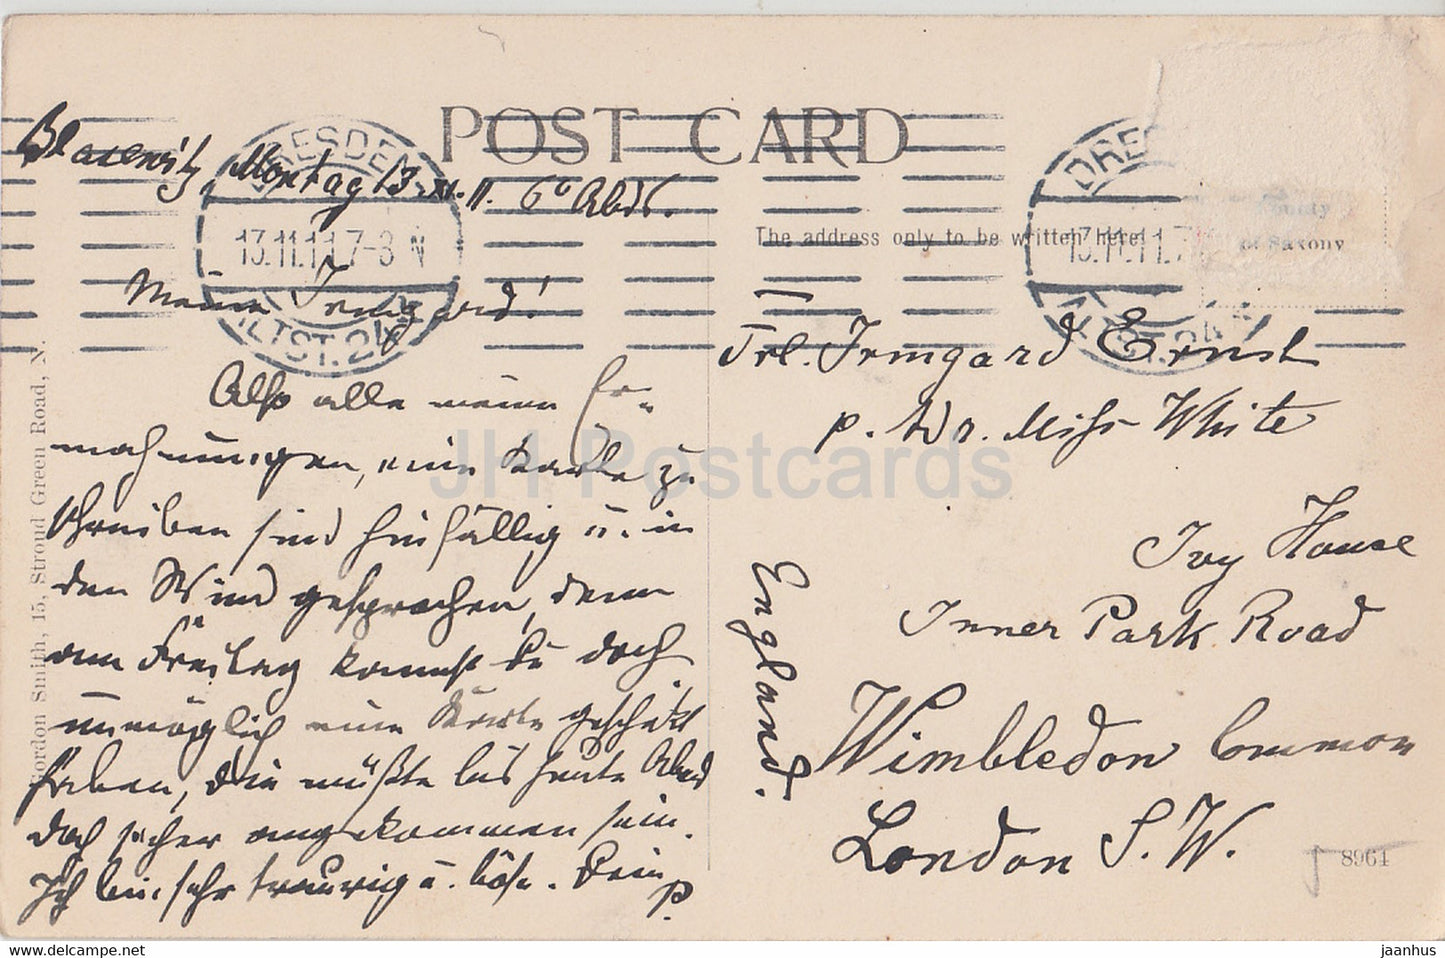 POST CARD
Blasewitz, Montag 13. XI. 11. 6° Abds.
DRESDEN
13.11.11.7-8 N
ALTST. 24
DRES
13.11.11.7
ALTST. 24
The address only to be written here.
County
of Saxony
Meine Irmgard!
Also alle meine Er-
mahnungen, eine Karte zu
schreiben sind hinfällig u. in
den Wind gesprochen, denn
am Freitag kannst Du doch
unmöglich eine Karte geschickt
haben, die müßte bis heute Abend
doch sicher angekommen sein.
Ich bin sehr traurig u. böse. Dein
P.
Frl. Irmgard Ernst
p. Adr. Miss White
Ivy House
Inner Park Road
Wimbledon Common
London S.W.
England.
Gordon Smith, 15, Stroud Green Road, N.
8964
JH Postcards
www.delcampe.net
jaanhus